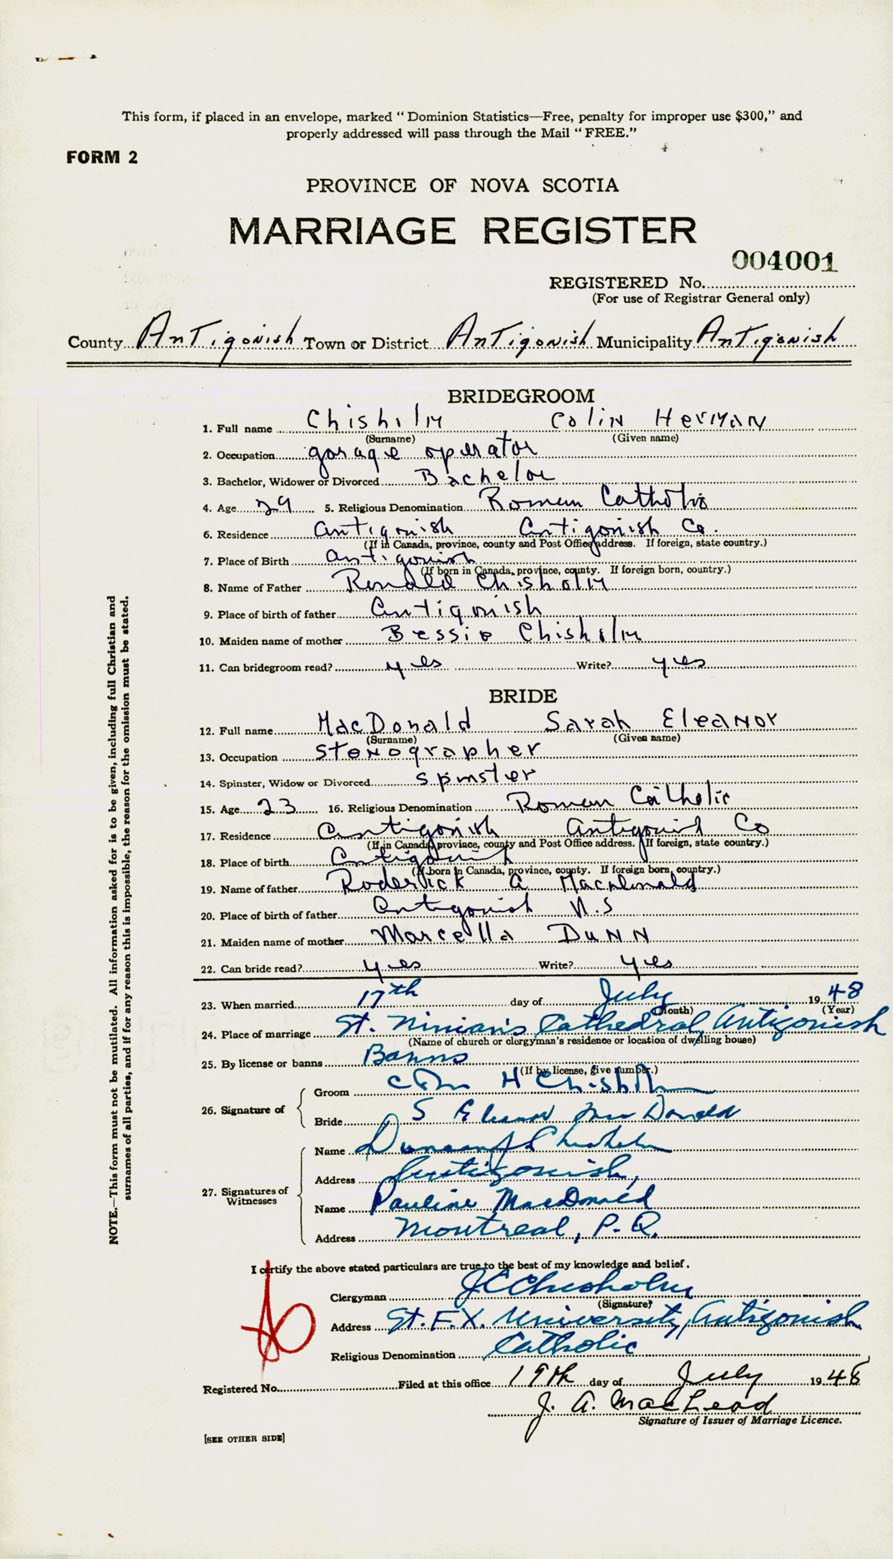 This form, if placed in an envelope, marked "Dominion Statistics—Free, penalty for improper use $300," and
properly addressed will pass through the Mail "FREE."
FORM 2
PROVINCE OF NOVA SCOTIA
MARRIAGE REGISTER
004001
REGISTERED No.
(For use of Registrar General only)
County Antigonish Town or District Antigonish Municipality Antigonish
BRIDEGROOM
1. Full name Chisholm Colin Herman
(Surname) (Given name)
2. Occupation garage operator
3. Bachelor, Widower or Divorced Bachelor
4. Age 29 5. Religious Denomination Roman Catholic
6. Residence Antigonish Antigonish Co.
(If in Canada, province, county and Post Office address. If foreign, state country.)
7. Place of Birth Antigonish
(If born in Canada, province, county. If foreign born, country.)
8. Name of Father Ronald Chisholm
9. Place of birth of father Antigonish
10. Maiden name of mother Bessie Chisholm
11. Can bridegroom read? yes Write? yes
BRIDE
12. Full name MacDonald Sarah Eleanor
(Surname) (Given name)
13. Occupation Stenographer
14. Spinster, Widow or Divorced spinster
15. Age 23 16. Religious Denomination Roman Catholic
17. Residence Antigonish Antigonish Co
(If in Canada, province, county and Post Office address. If foreign, state country.)
18. Place of birth Antigonish
(If born in Canada, province, county. If foreign born, country.)
19. Name of father Roderick A MacDonald
20. Place of birth of father Antigonish N.S
21. Maiden name of mother Marcella Dunn
22. Can bride read? yes Write? yes
23. When married 17th day of July 1948
(Month) (Year)
24. Place of marriage St. Ninian's Cathedral, Antigonish
(Name of church or clergyman's residence or location of dwelling house)
25. By license or banns Banns
(If by license, give number.)
26. Signature of
Groom Colin H Chisholm
Bride S Eleanor MacDonald
27. Signatures of Witnesses
Name Duncan J Chisholm
Address Antigonish,
Name Pauline MacDonald
Address Montreal, P.Q.
I certify the above stated particulars are true to the best of my knowledge and belief.
Clergyman J C Chisholm
(Signature)
Address St. F.X. University, Antigonish
Religious Denomination Catholic
Registered No. Filed at this office 19th day of July 1948
J. A. MacLeod
Signature of Issuer of Marriage Licence.
[SEE OTHER SIDE]
NOTE.—This form must not be mutilated. All information asked for is to be given, including full Christian and
surnames of all parties, and if for any reason this is impossible, the reason for the omission must be stated.